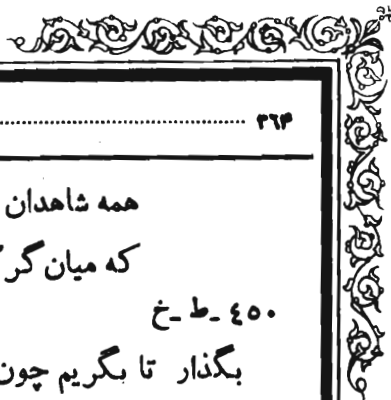 ۳۶۳
همه شاهدان
که میان گر
٤٥٠ ـ ط ـ خ
بگذار تا بگریم چون